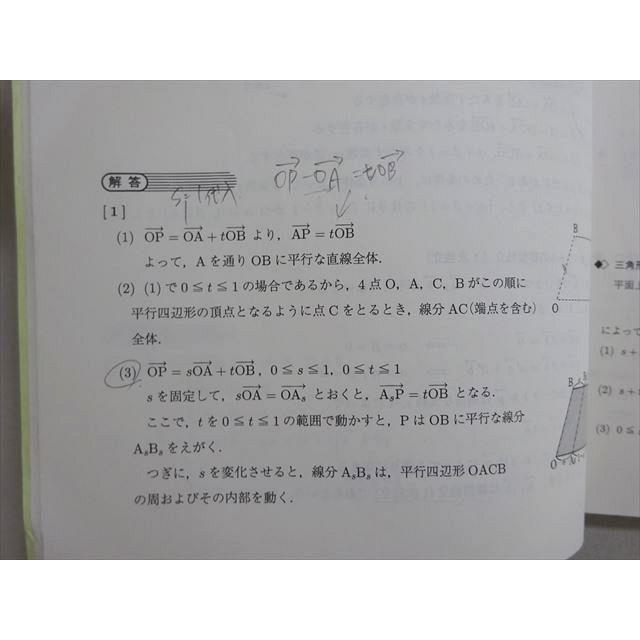 解答
s=1代入
OP-OA=tOB
[1]
(1) OP=OA+tOB より，AP=tOB
よって，A を通り OB に平行な直線全体．
(2) (1) で 0≦t≦1 の場合であるから，4点 O，A，C，B がこの順に
平行四辺形の頂点となるように点 C をとるとき，線分 AC(端点を含む)
全体．
(3) OP=sOA+tOB，0≦s≦1，0≦t≦1
s を固定して，sOA=OAs とおくと，AsP=tOB となる．
ここで，t を 0≦t≦1 の範囲で動かすと，P は OB に平行な線分
AsBs をえがく．
つぎに，s を変化させると，線分 AsBs は，平行四辺形 OACB
の周およびその内部を動く．
B
O
B
O
三角形
平面上
によって
(1) s+
(2) s+
(3) 0≦